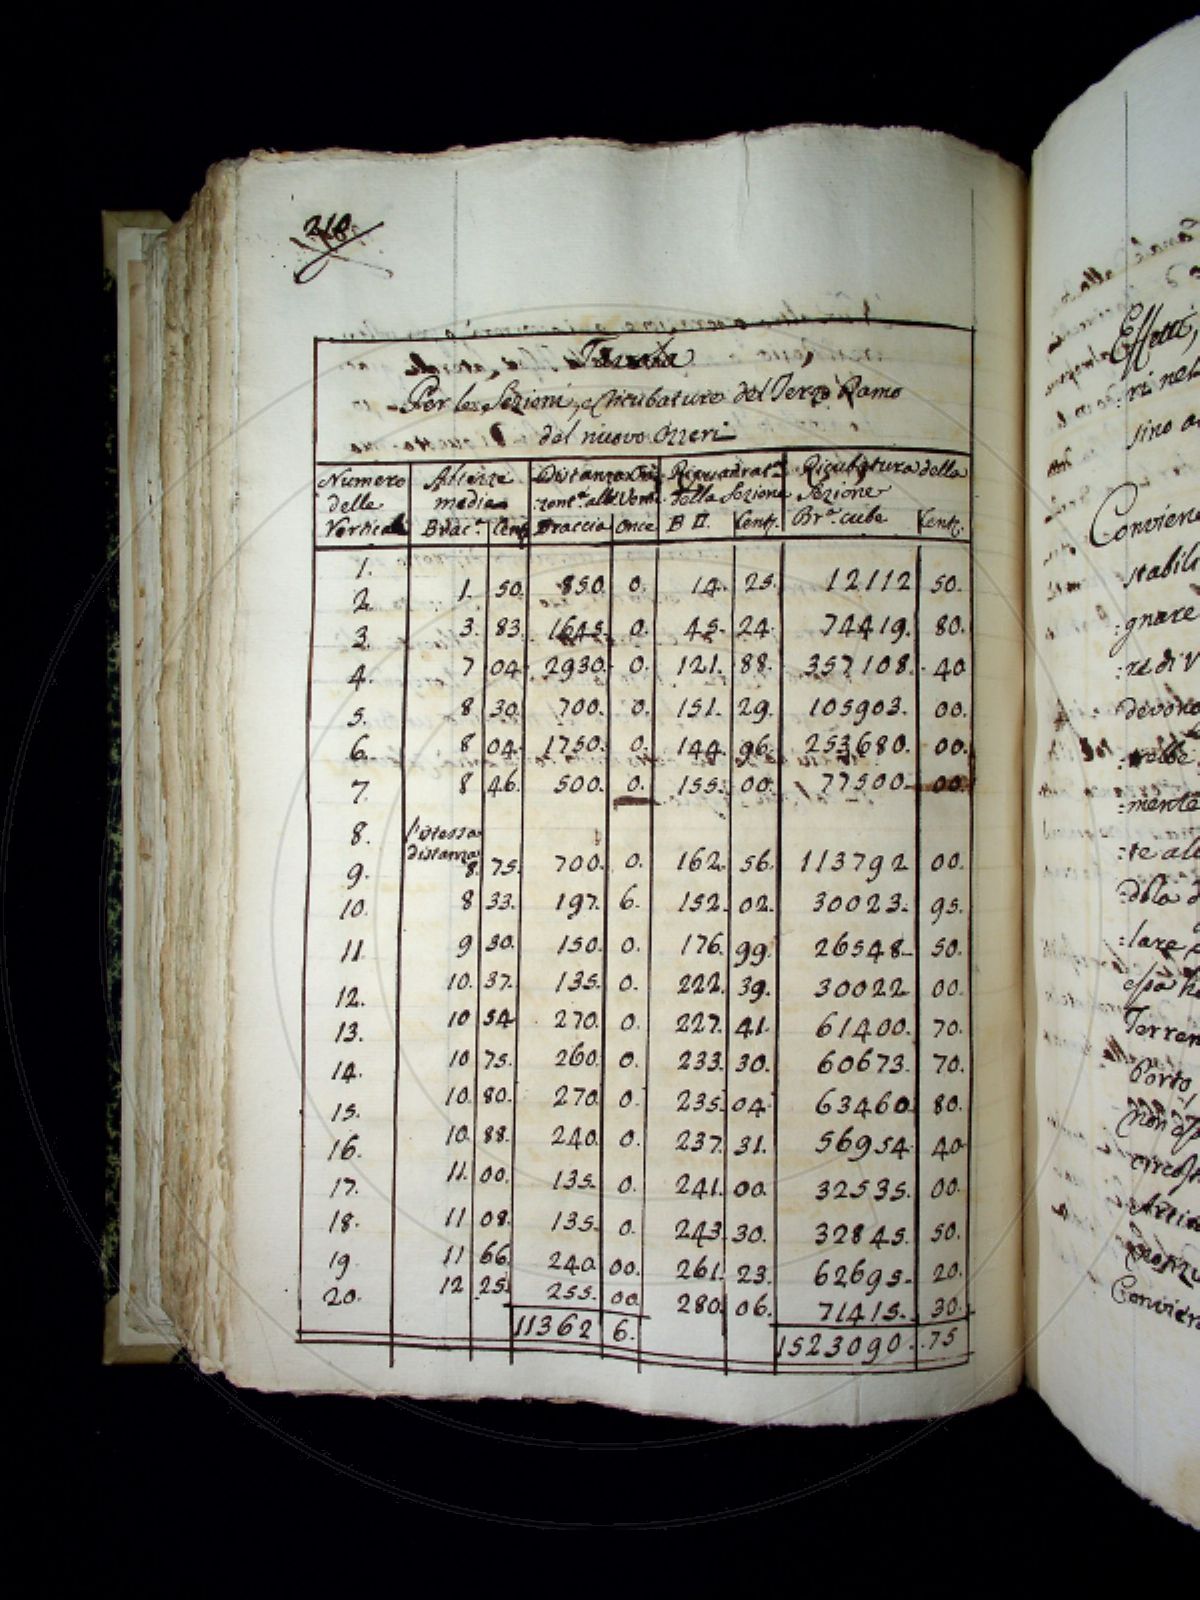 210
Tavola
Per le Sezioni, e Ricubature del Terzo Ramo
del nuovo Ozzeri
Numero delle Verticali | Altezze medie Brac.ª Cent. | Distanza Ori:zont.e alle Vert. Braccia Once | Riquadrat.ª della Sezione B □. Cent. | Ricubatura della Sezione Br.ª cube Cent.
1.
2. 1. 50. 850. 0. 14. 25. 12112 50.
3. 3. 83. 1645. 0. 45. 24. 74419. 80.
4. 7 04. 2930. 0. 121. 88. 357108. 40
5. 8 30. 700. 0. 151. 29. 105903. 00.
6. 8 04. 1750. 0. 144. 96. 253680. 00.
7. 8 46. 500. 0. 155. 00. 77500. 00.
8. l'istessa
distanza
9. 8. 75. 700. 0. 162. 56. 113792 00.
10. 8 33. 197. 6. 152. 02. 30023. 95.
11. 9 30. 150. 0. 176. 99. 26548. 50.
12. 10. 37. 135. 0. 222. 39. 30022 00.
13. 10 54 270. 0. 227. 41. 61400. 70.
14. 10 75. 260. 0. 233. 30. 60673. 70.
15. 10. 80. 270. 0. 235. 04. 63460. 80.
16. 10. 88. 240. 0. 237. 31. 56954 40
17. 11. 00. 135. 0. 241. 00. 32535. 00.
18. 11 08. 135. 0. 243. 30. 32845. 50.
19 11 66. 240. 00. 261. 23. 62695. 20.
20. 12 25. 255. 00. 280. 06. 71415. 30.
11362 6. 1523090. 75
Effetti,
ri nel
sino a
Conviene
stabili
:gnare
:re di V
devono
:mente
:te all
:lare
Terren
Porto,
non
Conviene